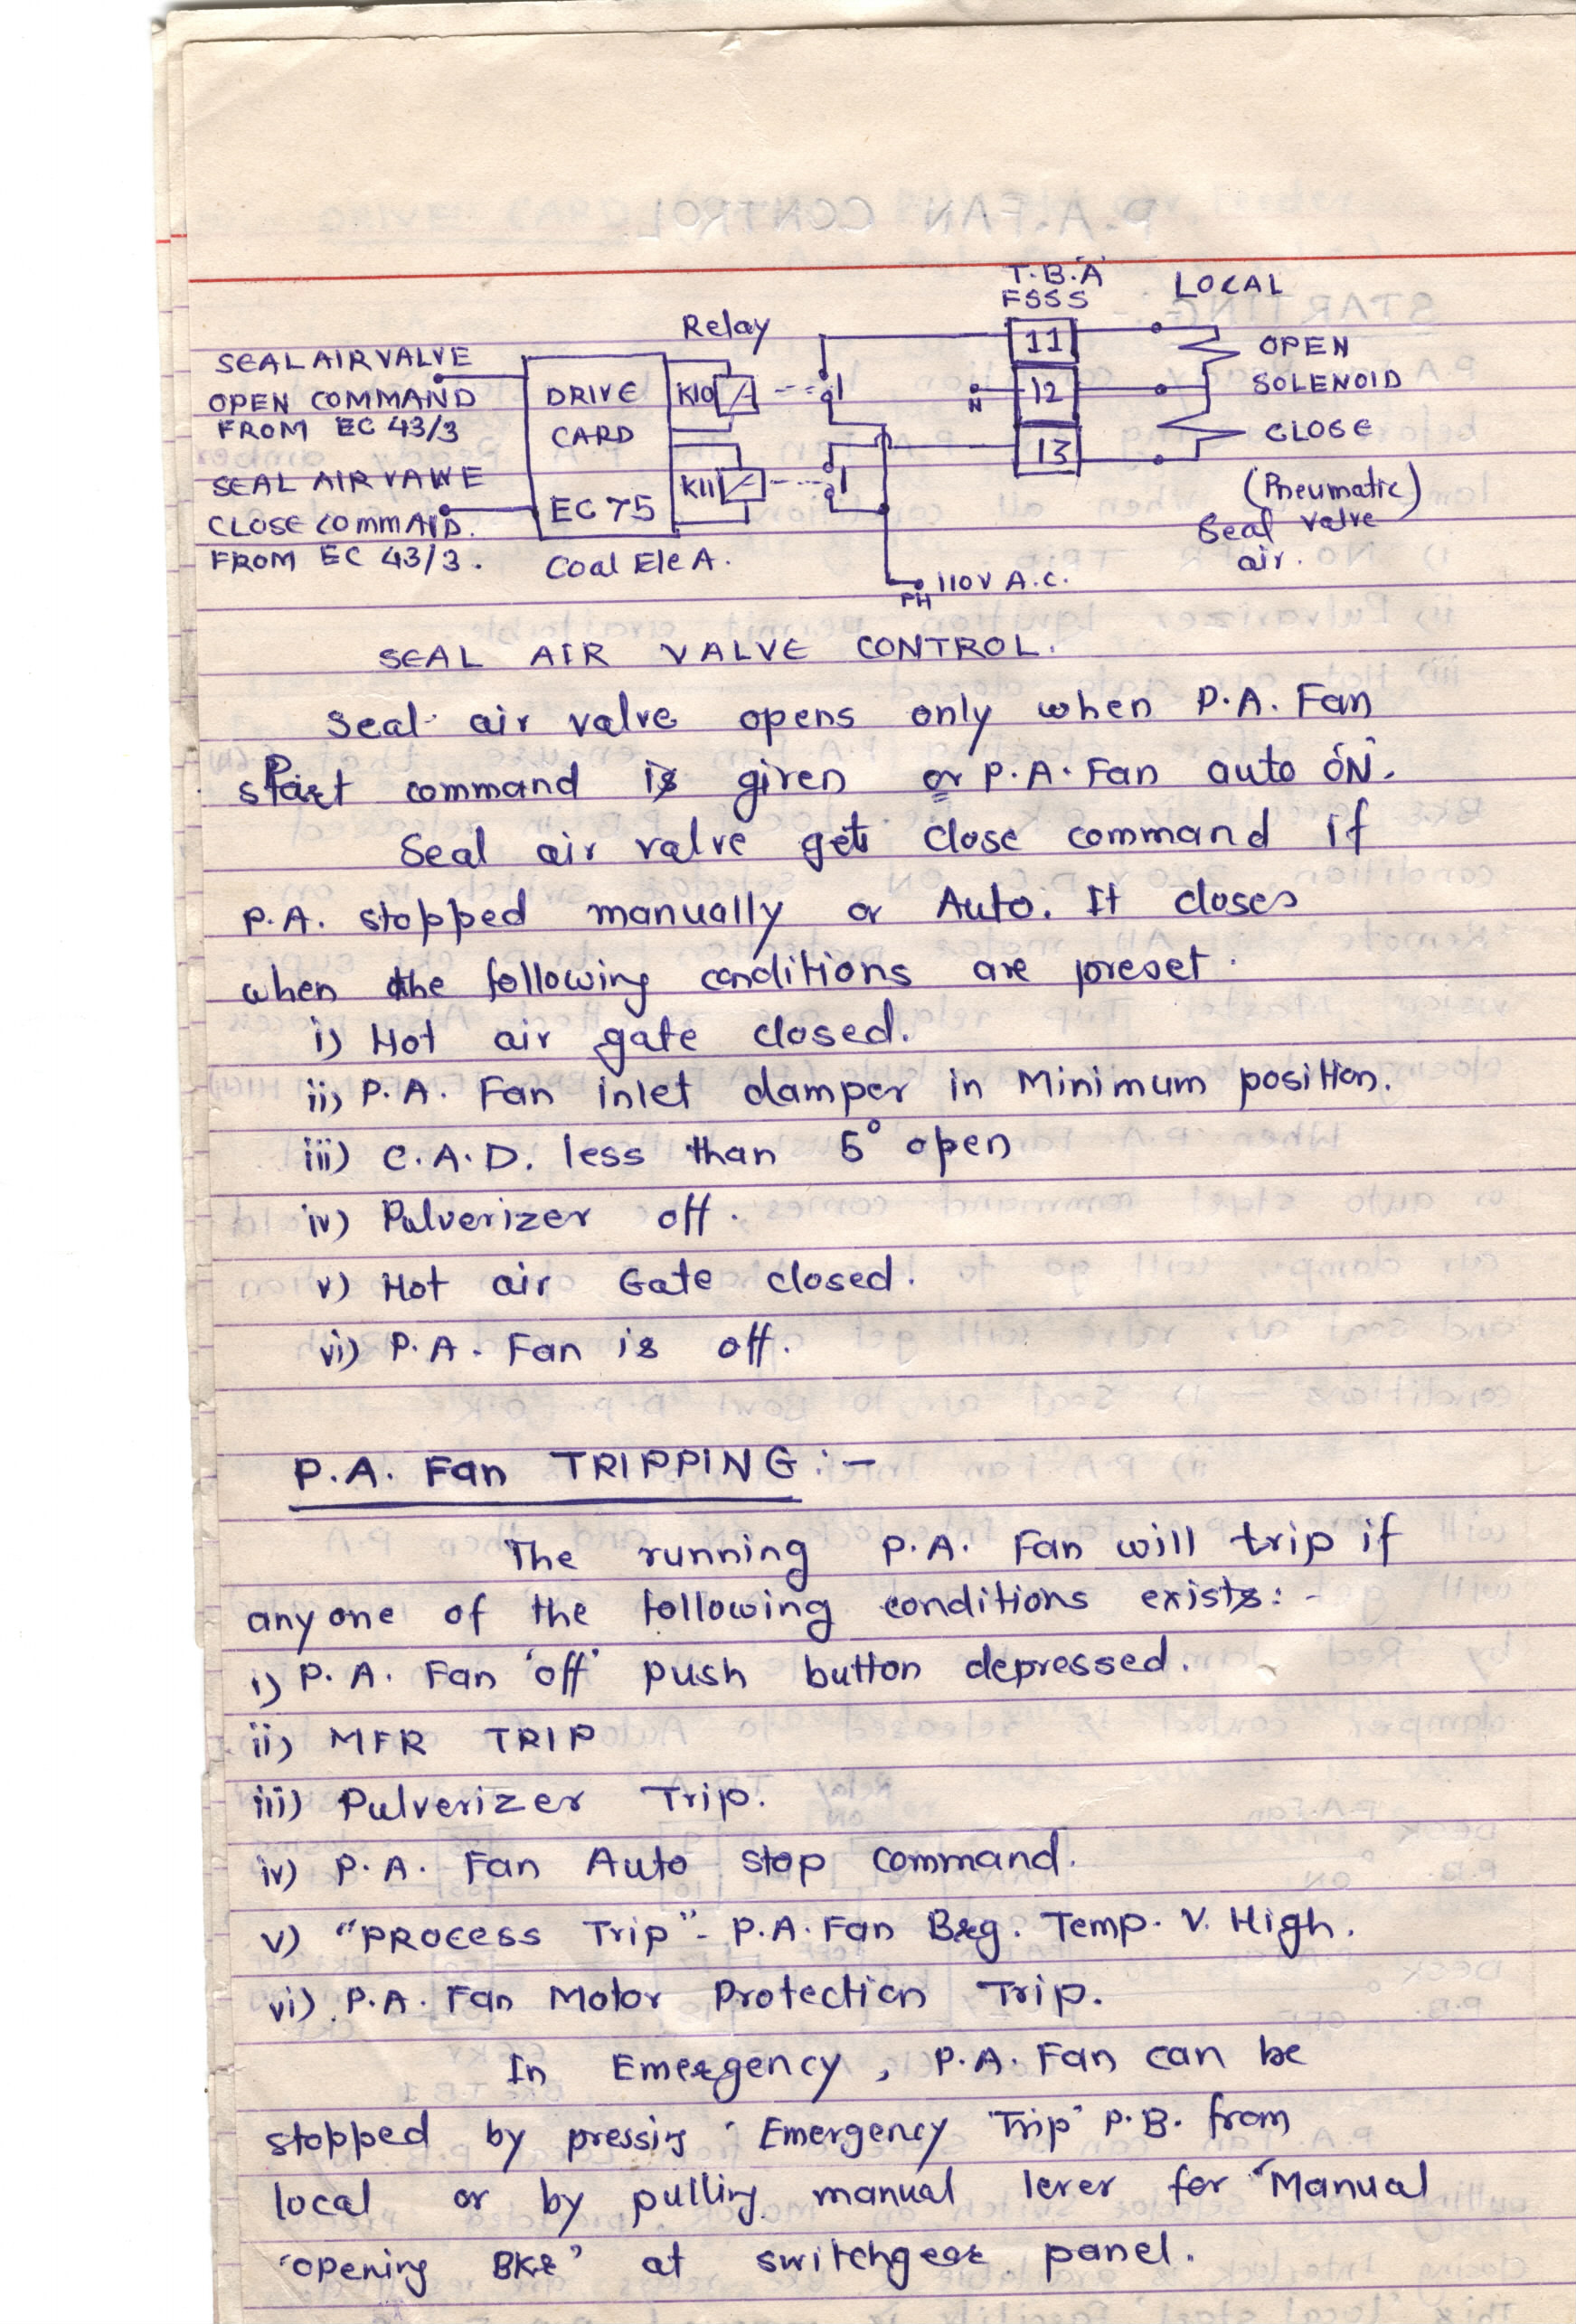 T.B.'A'
FSSS
LOCAL
Relay
11
SEAL AIR VALVE
OPEN COMMAND
FROM EC 43/3
DRIVE
CARD
K10
N
12
OPEN
SOLENOID
CLOSE
13
SEAL AIR VALVE
CLOSE COMMAND.
FROM EC 43/3.
EC 75
K11
(Pneumatic)
Seal Valve
air.
Coal Ele A.
PH 110V A.C.
SEAL AIR VALVE CONTROL.
Seal air valve opens only when P.A. Fan
start command is given or P.A. Fan auto ON.
Seal air valve gets close command if
P.A. stopped manually or Auto. It closes
when the following conditions are preset.
i) Hot air gate closed.
ii) P.A. Fan inlet damper in Minimum position.
iii) C.A.D. less than 5° open
iv) Pulverizer off.
v) Hot air Gate closed.
vi) P.A. Fan is off.
P.A. Fan TRIPPING :-
The running P.A. Fan will trip if
any one of the following conditions exists: -
i) P.A. Fan 'off' push button depressed.
ii) MFR TRIP
iii) Pulverizer Trip.
iv) P.A. Fan Auto stop command.
v) "PROCESS Trip" - P.A. Fan Brg. Temp. V. High.
vi) P.A. Fan Motor Protection Trip.
In Emergency, P.A. Fan can be
stopped by pressing 'Emergency Trip' P.B. from
local or by pulling manual lever for 'Manual
'opening BKR' at switchgear panel.